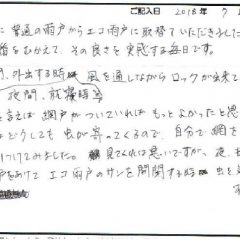 ご記入日 2018年7
に普通の雨戸からエコ雨戸に取替ていただきました
をむかえて、その良さを実感する毎日です。
外出する時 風を通しながらロックが出来て
夜間、就寝時
言えば網戸がついていればもっとよかったと思
はどうしても虫が寄ってくるので、自分で網を
つけてみました。見てくれは悪いですが、夜、
をあけてエコ雨戸のサンを開閉する時 虫を